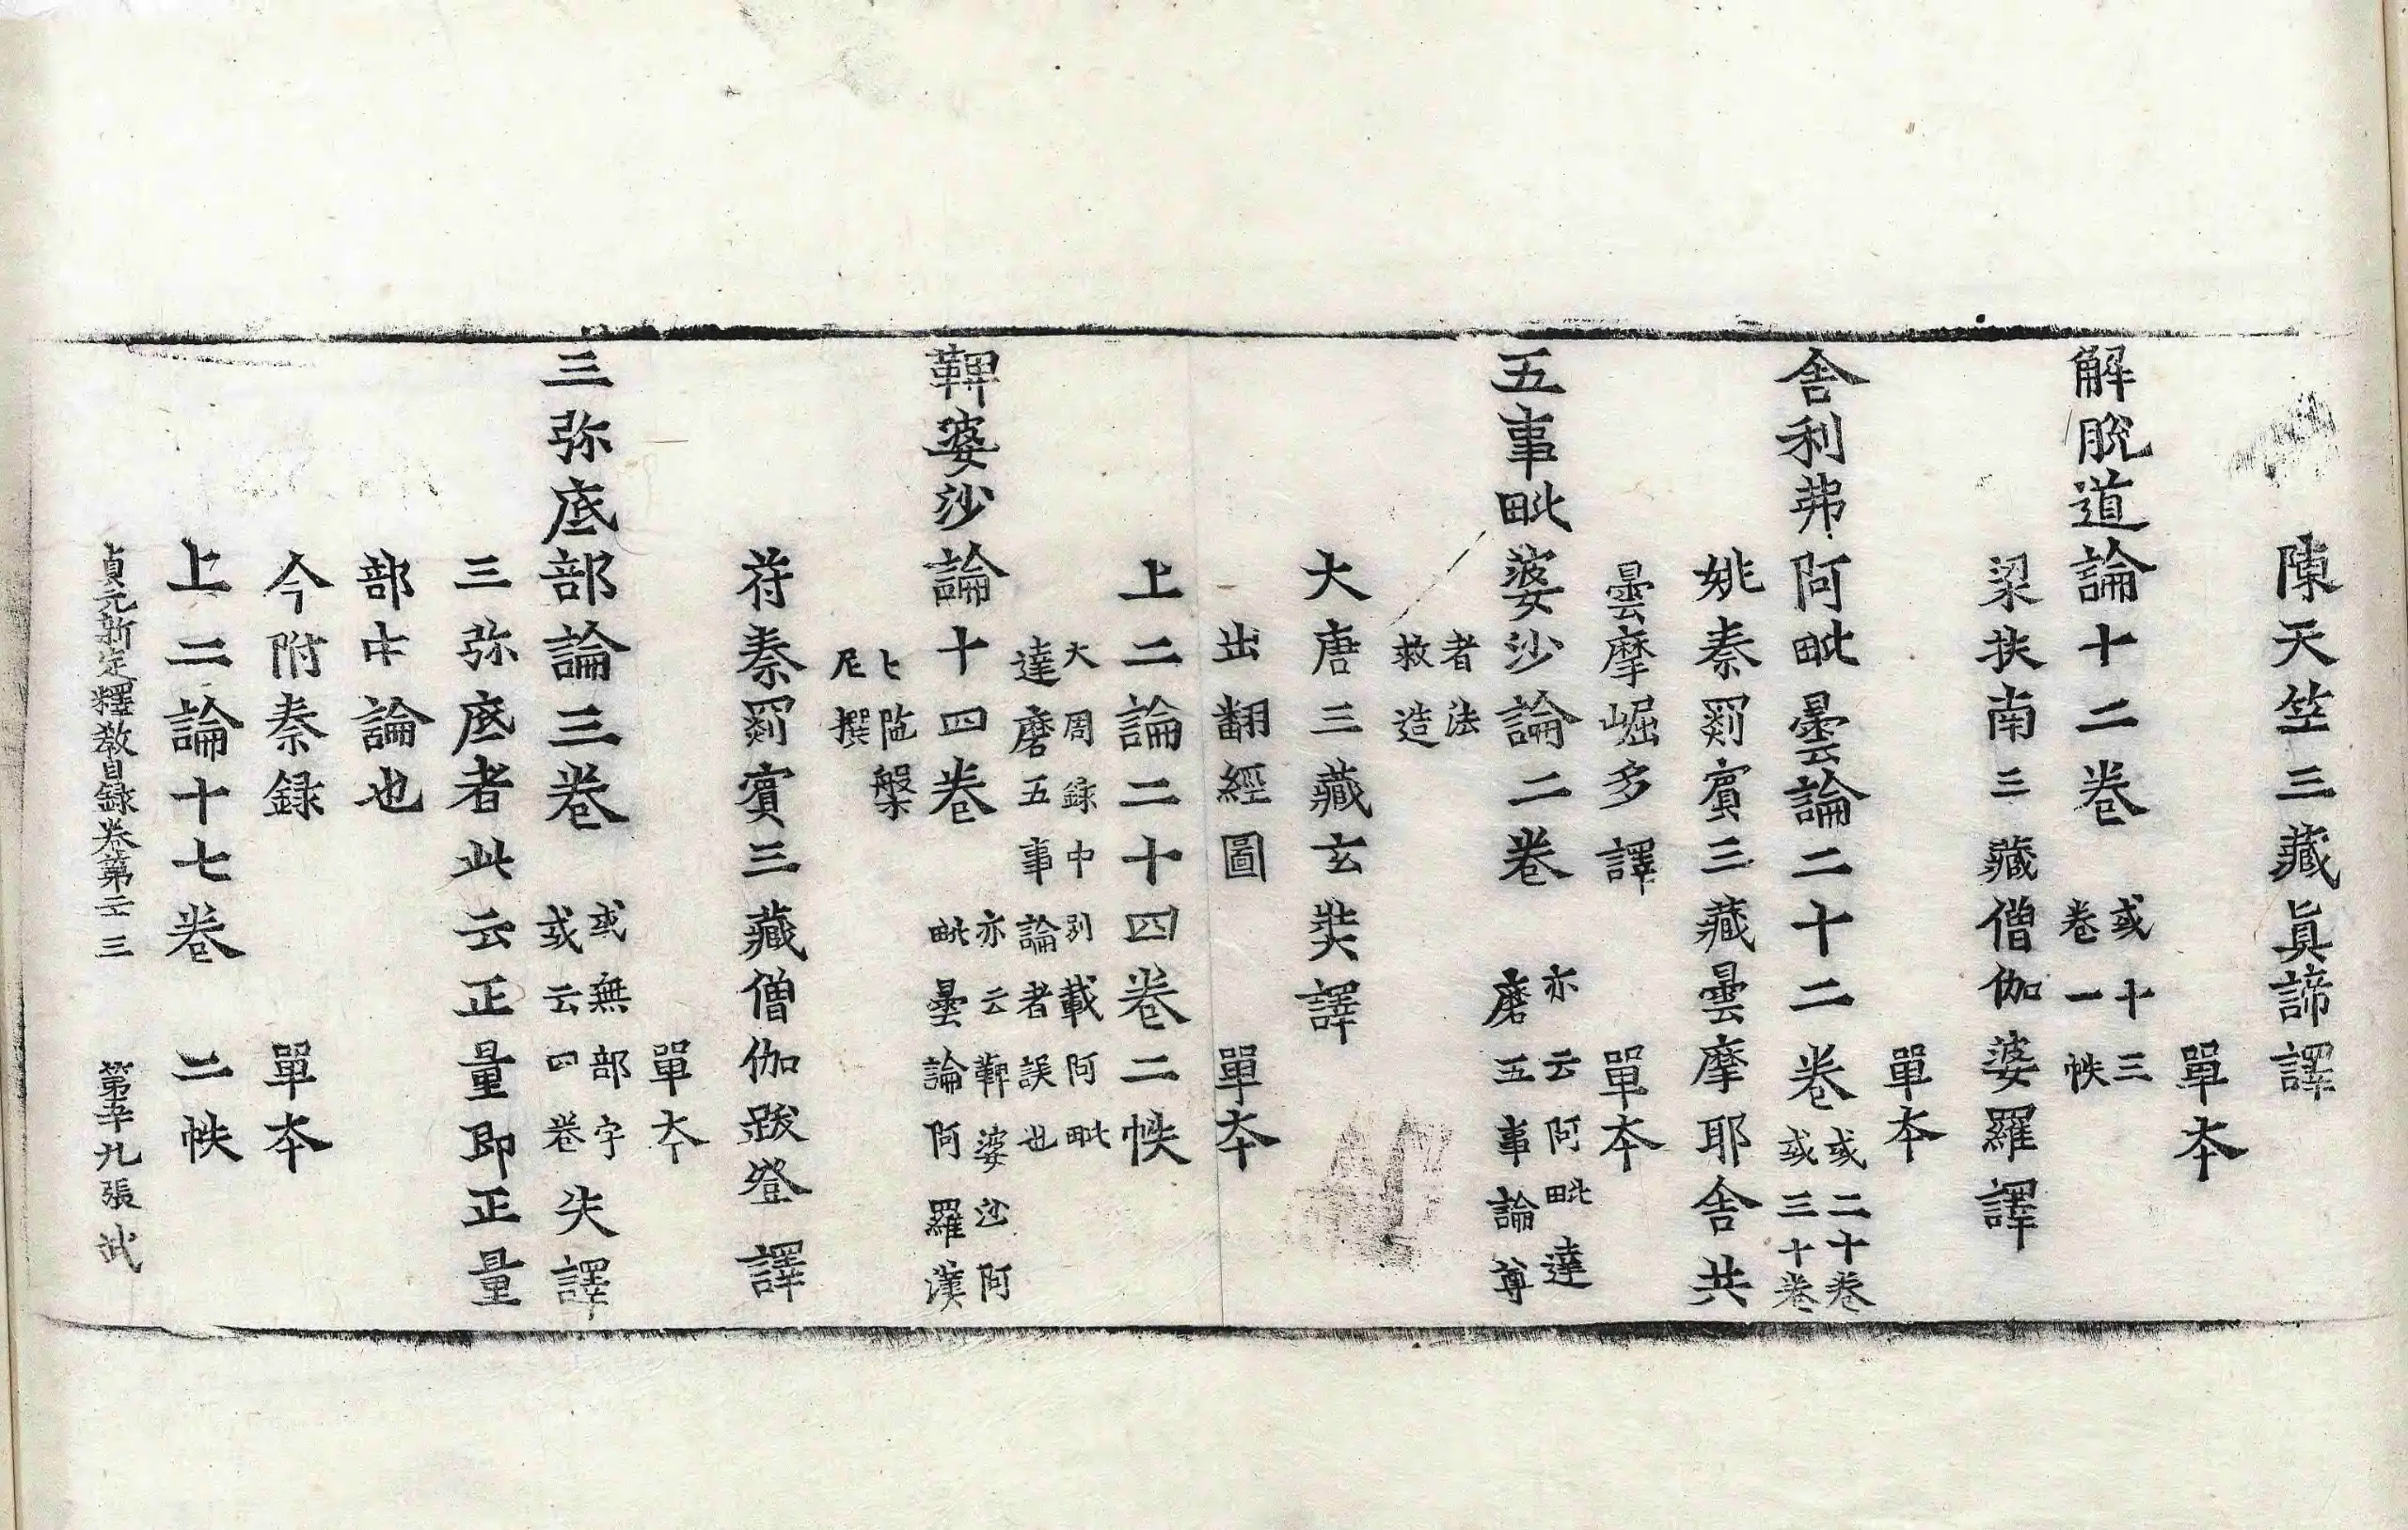 陳天笠三藏眞諦譯
單本
解脫道論十二卷 或十三卷一帙
梁扶南三藏僧伽婆羅譯
單本
舎利弗阿毗曇論二十二卷 或二十卷或三十卷
姚秦罽賓三藏曇摩耶舎共
曇摩崛多譯 單本
五事毗婆沙論二卷 亦云阿毗達磨五事論尊
者法救造
大唐三藏玄奘譯
出翻經圖 單本
上二論二十四卷二帙
大周録中別載阿毗達磨五事論者誤也
鞞婆沙論十四卷 亦云鞞婆沙阿毗曇論阿羅漢
尸陁槃尼撰
苻秦罽賓三藏僧伽跋澄譯
單本
三弥底部論三卷 或無部字或云四卷 失譯
三弥底者此云正量即正量
部中論也
今附秦録 單本
上二論十七卷 二帙
貞元新定釋教目録卷第二三 第五九張 武